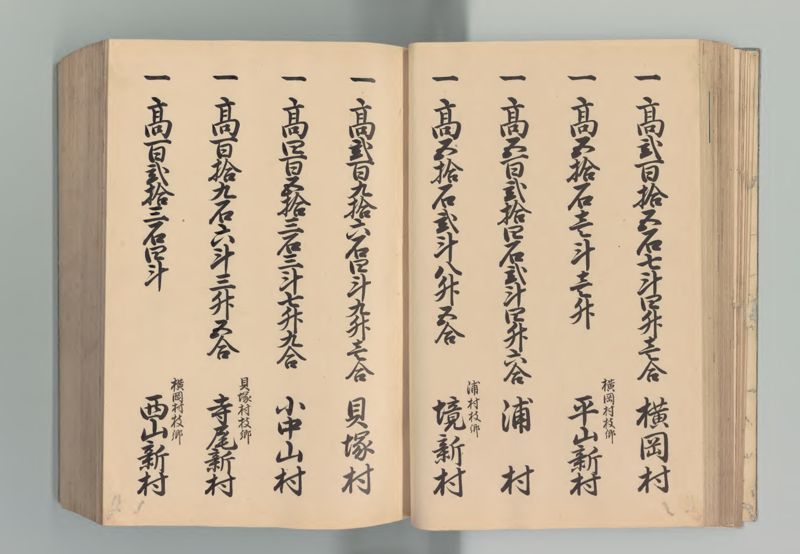 一 高弐百拾五石七斗四升壱合 横岡村
一 高五拾石壱斗壱升 横岡村枝郷 平山新村
一 高五百弐拾四石弐斗四升六合 浦村
一 高五拾石弐斗八升五合 浦村枝郷 境新村
一 高弐百九拾六石四斗九升壱合 貝塚村
一 高四百五拾三石三斗七升九合 小中山村
一 高百拾九石六斗三升五合 貝塚村枝郷 寺尾新村
一 高百弐拾三石四斗 横岡村枝郷 西山新村